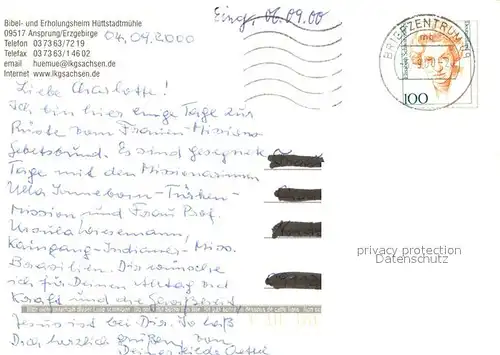 Bibel- und Erholungsheim Hüttstadtmühle
09517 Ansprung/Erzgebirge
Telefon 03 73 63/72 19
Telefax 03 73 63/1 46 02
email huemue@lkgsachsen.de
Internet www.lkgsachsen.de
04.09.2000
Eing. 06.09.00
BRIEFZENTRUM 09
mb
100
Liebe Charlotte!
Ich bin hier einige Tage zur
Rüste vom Frauen-Missions
Gebetsbund. Es sind gesegnete
Tage mit den Missionarinnen
Ulla Sonneborn-Türken-
Mission und Frau Prof.
Ursula Wiesemann!
Kaingang-Indianer-Miss.
Brasilien. Dir wünsche
ich für Deinen Alltag viel
Kraft und die Gewißheit
Jesus ist bei Dir. So laß
Dich herzlich grüßen von
Deiner Hilde
privacy protection
Datenschutz